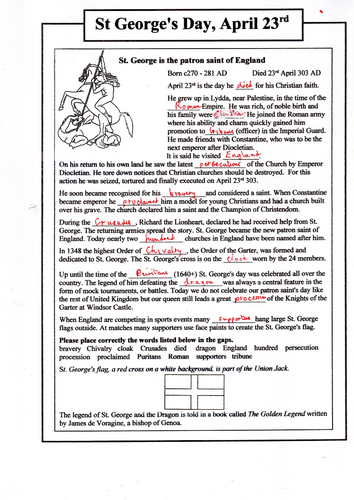 St George's Day, April 23rd
St. George is the patron saint of England
Born c270 - 281 AD Died 23rd April 303 AD
April 23rd is the day he died for his Christian faith.
He grew up in Lydda, near Palestine, in the time of the
Roman Empire. He was rich, of noble birth and
his family were Christian. He joined the Roman army
where his ability and charm quickly gained him
promotion to tribune (officer) in the Imperial Guard.
He made friends with Constantine, who was to be the
next emperor after Diocletian.
It is said he visited England
On his return to his own land he saw the latest persecution of the Church by Emperor
Diocletian. He tore down notices that Christians should be destroyed. For this
action he was seized, tortured and finally executed on April 23rd 303.
He soon became recognised for his bravery and considered a saint. When Constantine
became emperor he proclaimed him a model for young Christians and had a church built
over his grave. The church declared him a saint and the Champion of Christendom.
During the Crusades, Richard the Lionheart, declared he had received help from St.
George. The returning armies spread the story. St. George became the new patron saint of
England. Today nearly two hundred churches in England have been named after him.
In 1348 the highest Order of Chivalry, the Order of the Garter, was formed and
dedicated to St. George. The St. George's cross is on the cloak worn by the 24 members.
Up until the time of the Puritans (1640+) St. George's day was celebrated all over the
country. The legend of him defeating the dragon was always a central feature in the
form of mock tournaments, or battles. Today we do not celebrate our patron saint's day like
the rest of United Kingdom but our queen still leads a great procession of the Knights of the
Garter at Windsor Castle.
When England are competing in sports events many supporters hang large St. George
flags outside. At matches many supporters use face paints to create the St. George's flag.
Please place correctly the words listed below in the gaps.
bravery Chivalry cloak Crusades died dragon England hundred persecution
procession proclaimed Puritans Roman supporters tribune
St. George's flag, a red cross on a white background, is part of the Union Jack.
The legend of St. George and the Dragon is told in a book called The Golden Legend written
by James de Voragine, a bishop of Genoa.